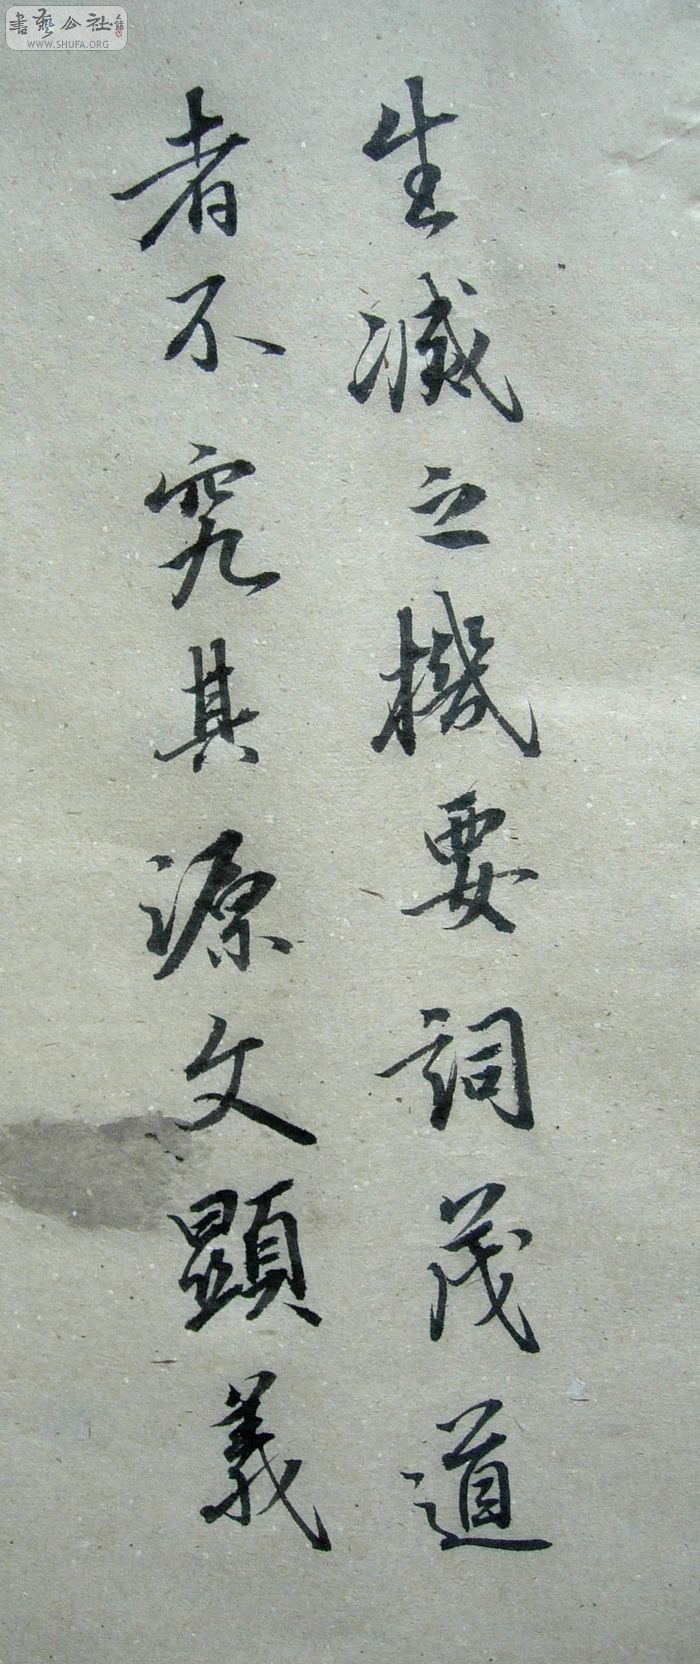 生滅之機要詞茂道
者不究其源文顯義
書藝公社
WWW.SHUFA.ORG